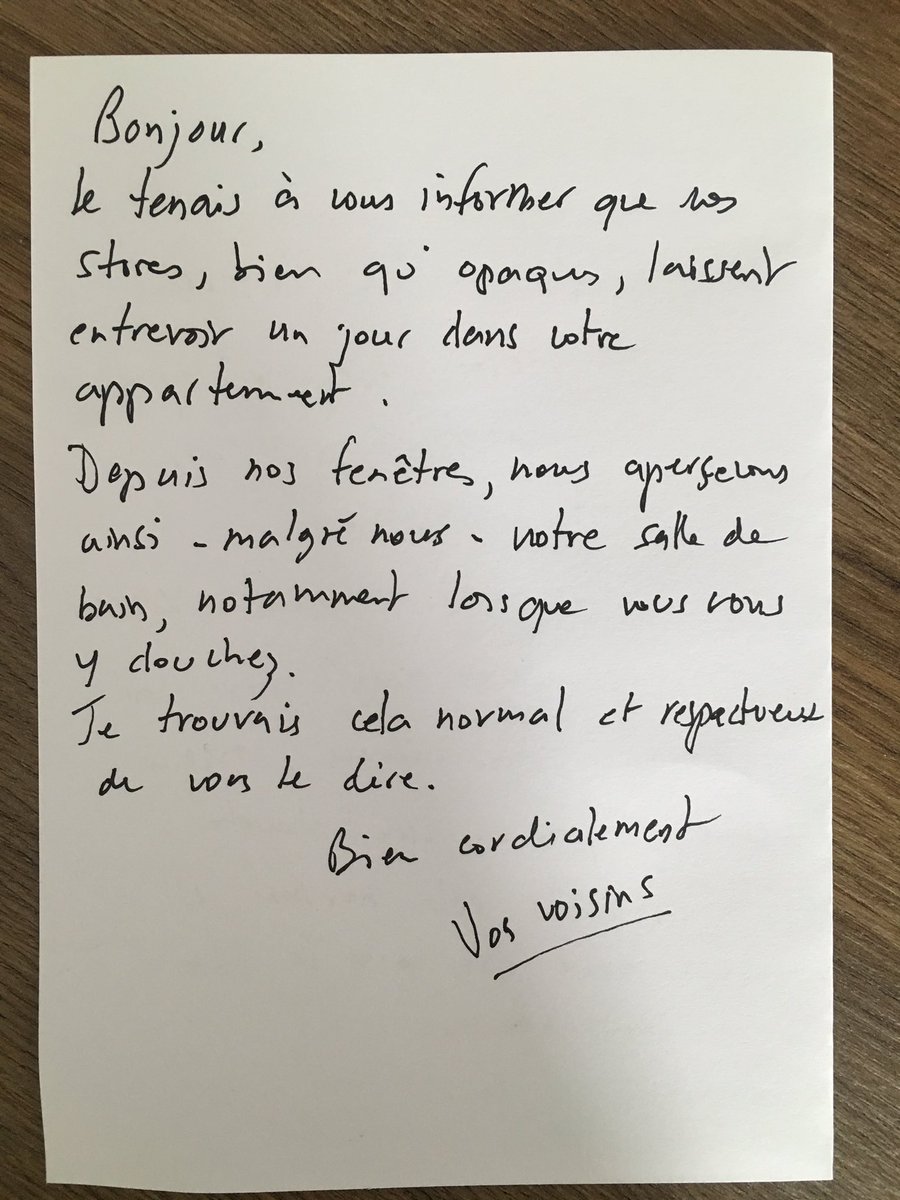 Bonjour,
Je tenais à vous informer que vos
stores, bien qu'opaques, laissent
entrevoir un jour dans votre
appartement.
Depuis nos fenêtres, nous aperçevons
ainsi - malgré nous - votre salle de
bain, notamment lorsque vous vous
y douchez.
Je trouvais cela normal et respectueux
de vous le dire.
Bien cordialement
Vos voisins